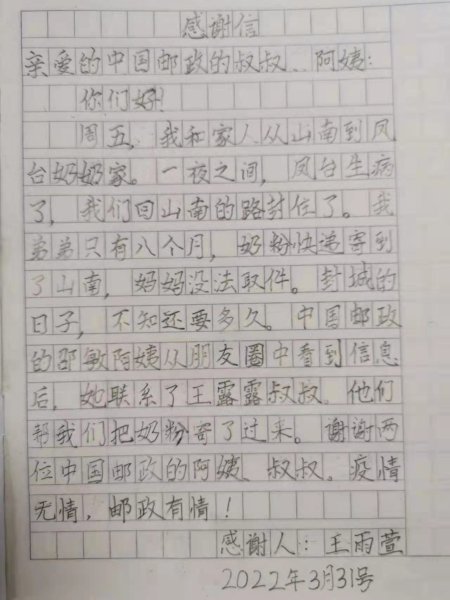 感谢信
亲爱的中国邮政的叔叔、阿姨:
你们好!
周五,我和家人从山南到凤
台奶奶家。一夜之间,凤台生病
了,我们回山南的路封住了。我
弟弟只有八个月,奶粉快递寄到
了山南,妈妈没法取件。封城的
日子,不知还要多久。中国邮政
的邵敏阿姨从朋友圈中看到信息
后,她联系了王露露叔叔。他们
帮我们把奶粉寄了过来。谢谢两
位中国邮政的阿姨、叔叔。疫情
无情,邮政有情!
感谢人:王雨萱
2022年3月31号